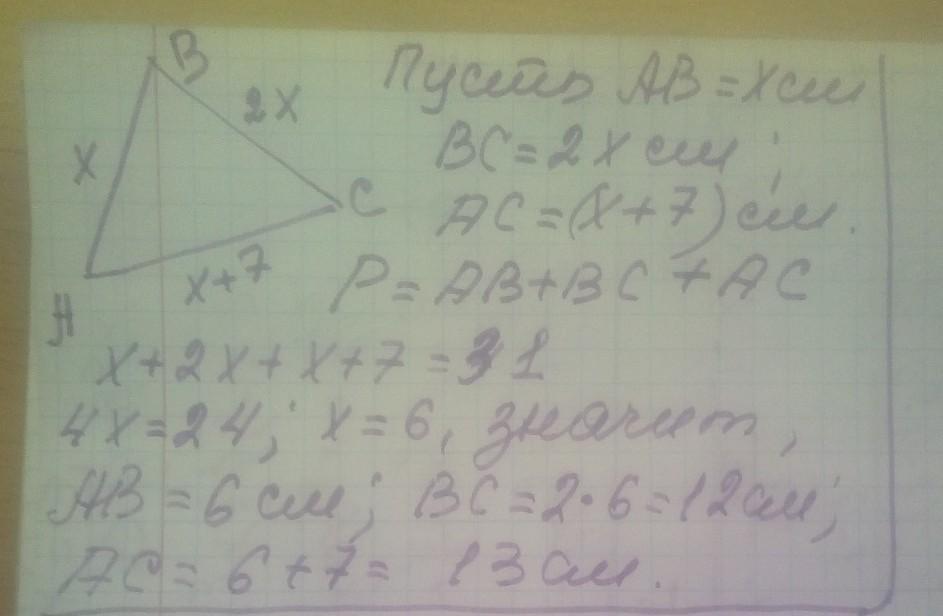 B
2x
x
C
x+7
A
Пусть AB = x см
BC = 2x см;
AC = (x+7) см.
P = AB + BC + AC
x + 2x + x + 7 = 31
4x = 24; x = 6, значит,
AB = 6 см; BC = 2·6 = 12 см;
AC = 6 + 7 = 13 см.